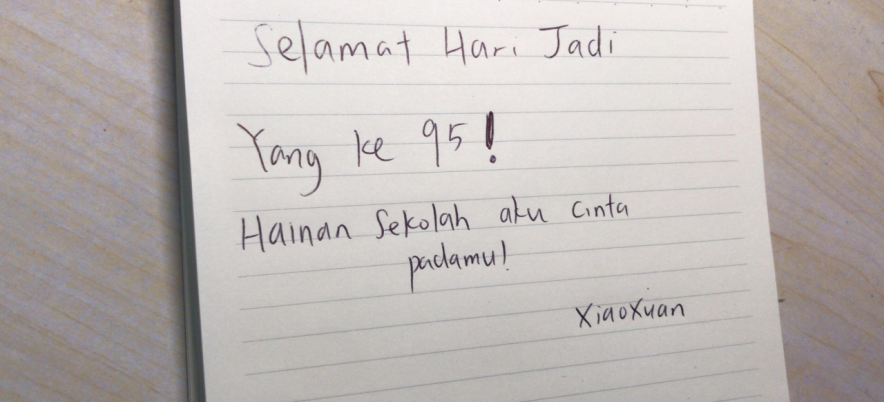 Selamat Hari Jadi
Yang ke 95!
Hainan Sekolah aku cinta
padamu!
XiaoXuan